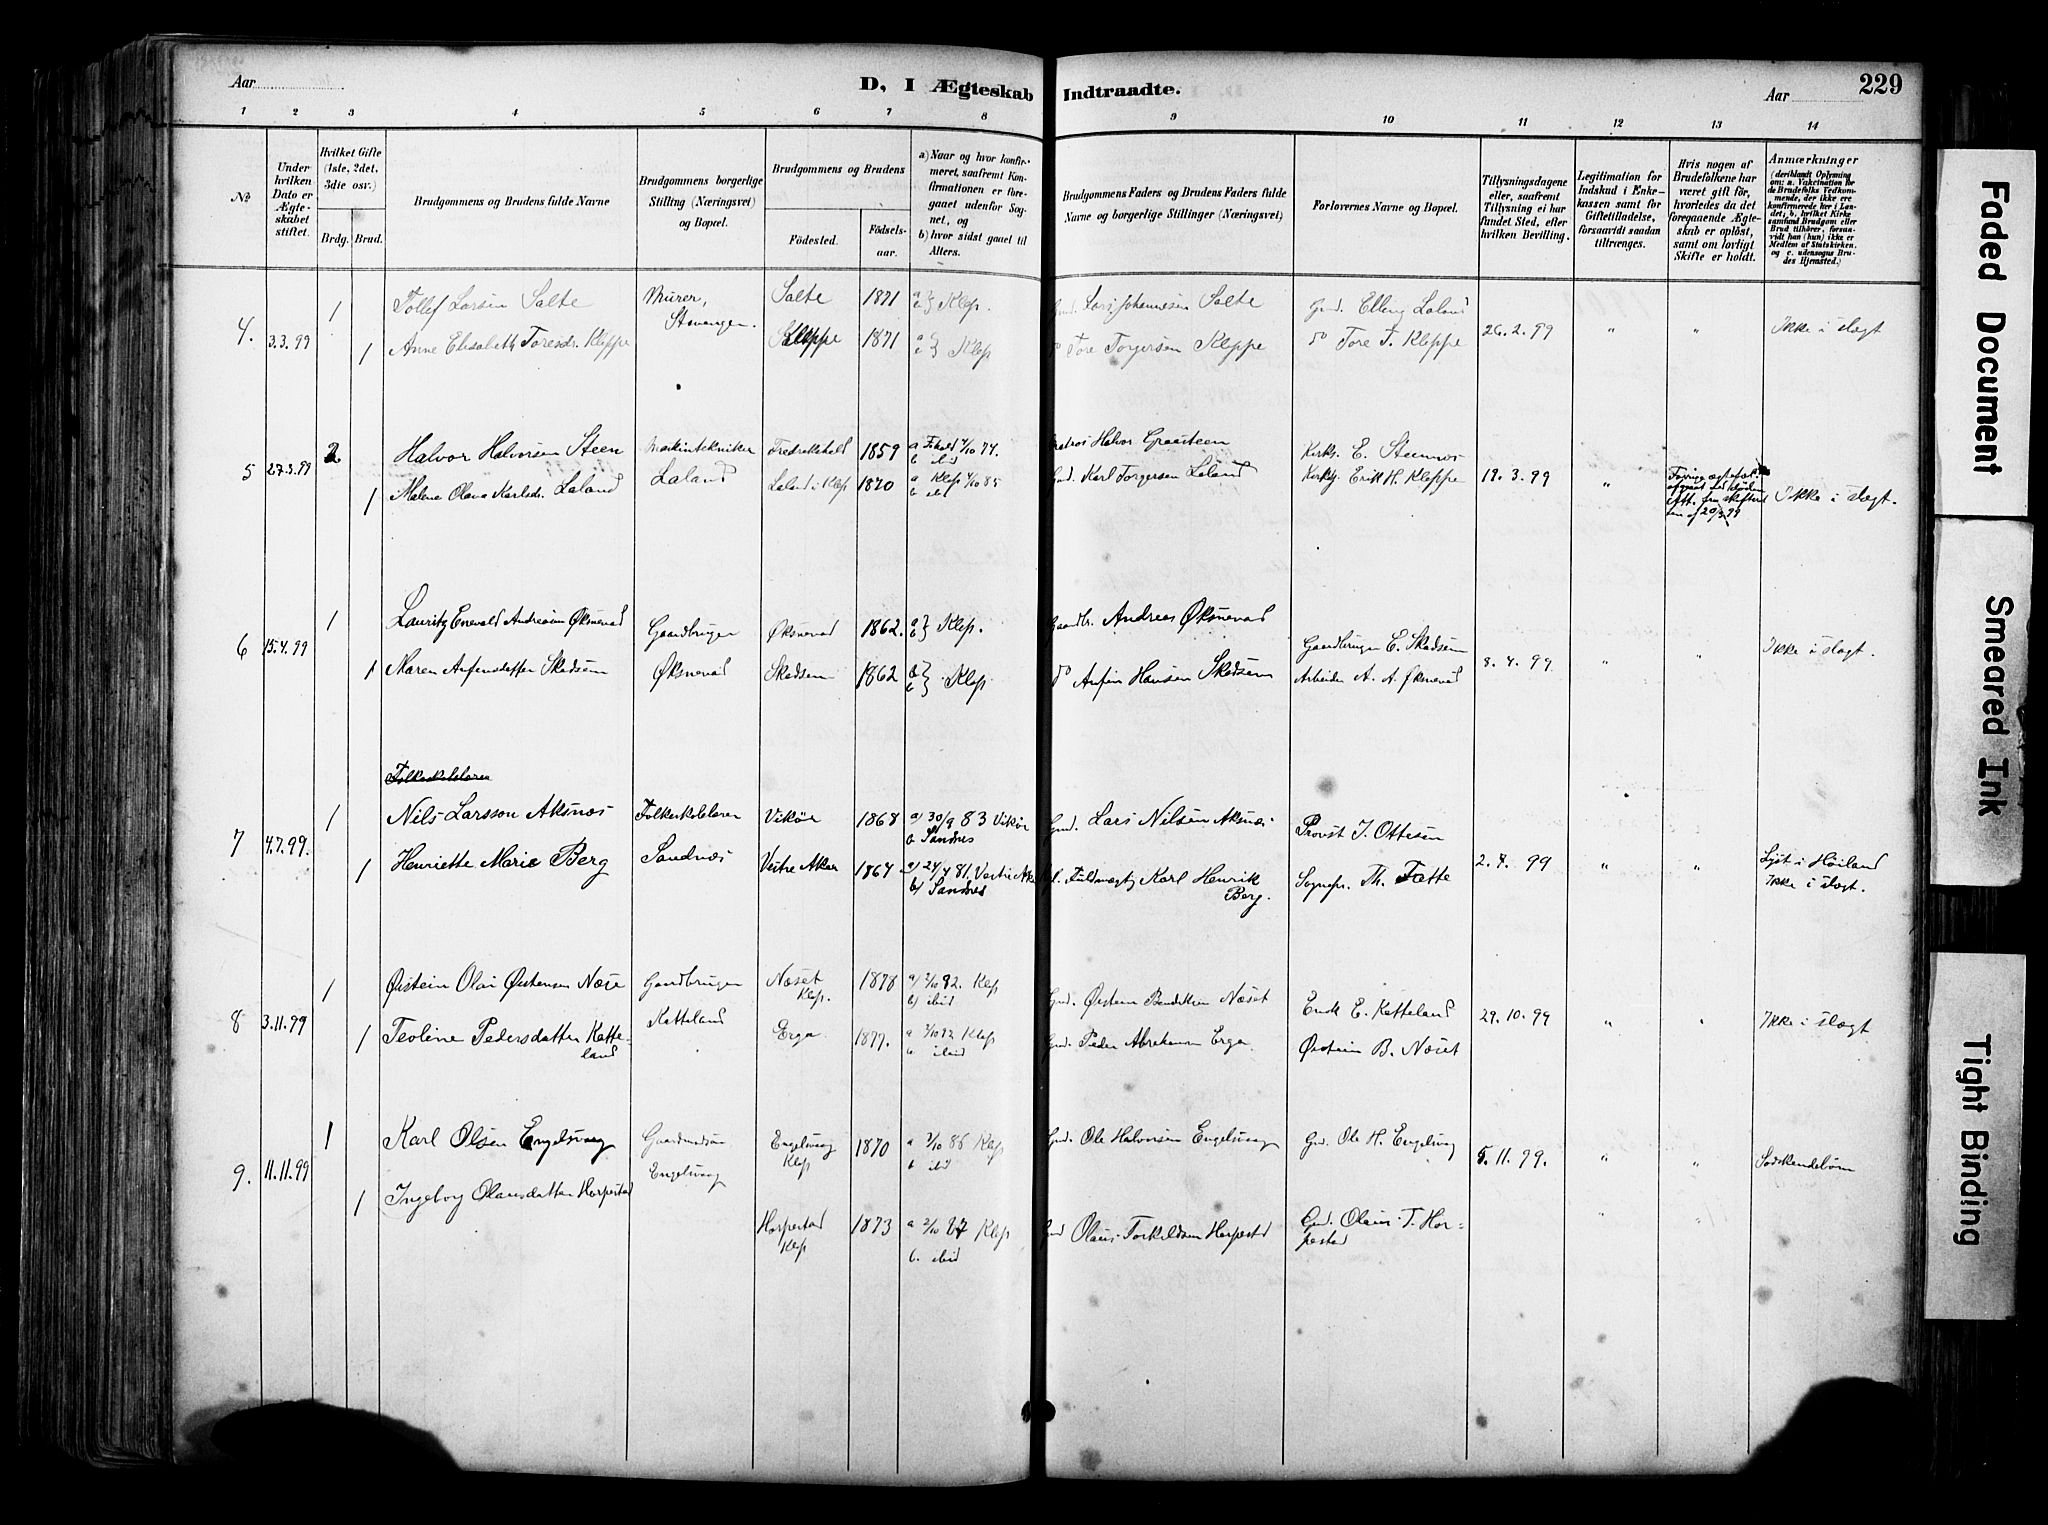 Aar
D, I Ægteskab Indtraadte.
Aar
229
1 2 3 4 5 6 7 8 9 10 11 12 13 14
№
Under hvilken Dato er Ægteskabet stiftet.
Hvilket Gifte (1ste, 2det, 3die osv.)
Brdg. Brud.
Brudgommens og Brudens fulde Navne
Brudgommens borgerlige Stilling (Næringsvei) og Bopæl.
Brudgommens og Brudens
Fødested.
Fødselsaar.
a) Naar og hvor konfirmeret, saafremt Konfirmationen er foregaaet udenfor Sognet, og
b) hvor sidst gaaet til Alters.
Brudgommens Faders og Brudens Faders fulde Navne og borgerlige Stillinger (Næringsvei)
Forlovernes Navne og Bopæl.
Tillysningsdagene eller, saafremt Tillysning ei har fundet Sted, efter hvilken Bevilling.
Legitimation for Indskud i Enkekassen samt for Giftetilladelse, forsaavidt saadan tiltrænges.
Hvis nogen af Brudefolkene har været gift før, hvorledes da det foregaaende Ægteskab er opløst, samt om lovligt Skifte er holdt.
Anmærkninger (deriblandt Oplysning om: a. Vakcination for de Brudefolks Vedkommende, der ikke ere konfirmerede her i Landet; b. hvilket Kirkesamfund Brudgom eller Brud tilhører, forsaavidt han (hun) ikke er Medlem af Statskirken, og c. udensogns Brudes Hjemsted.)
4. 3.3.99
1 Tollef Larsen Salte Murer, Stavanger. Salte 1871 a b } Klep. Gmd. Lars Johannesen Salte Gmd. Elling Laland
1 Anne Elisabeth Toresdr. Kleppe Kleppe 1871 a b } Klep do Tore Torgersen Kleppe do Tore T. Kleppe
26.2.99 " " Ikke i slægt
5 27.3.99
2 Halvor Halvorsen Steen Maskintekniker Laland Fredrikshald 1859 a Fhald 4/10 74. b ibid Halvor Graasteen Kirks. E. Steensnes
1 Malene Olava Karlsdr. Laland Laland i Klep 1870 a Klep 4/10 85 b ibid Gmd. Karl Torgersen Laland Kirkss. Erik H. Kleppe
19.3.99 " 20/3 99 Ikke i slægt.
6 15.4.99
1 Lauritz Enevald Andreassen Øksnevad Gaardbruger Øksnevad Øksnevad 1862. a b } Klep. Gaardbr. Andreas Øksnevad Gaardbruger E. Skadsem
1 Maren Anfensdatter Skadsem Skadsem 1862 a b } Klep do Anfin Hansen Skadsem Arbeider A. A. Øksnevad
8.4.99 " " Ikke i slægt.
Folkeskolelærer
7 4.7.99.
1 Nils Larsson Aksnæs Folkeskolelærer Sandnæs Vikør 1868 a) 30/9 83 Vikør b Sandnes Gmd. Lars Nilsen Aksnæs Provst J. Ottesen
1 Henriette Marie Berg Vestre Aker 1864 a) 24/4 81. Vestre Ake b) Sandnes Fuldmægtig Karl Henrik Berg. Sognepr. Th. Tætte
2.7.99 " " Lyst i Høiland Ikke i slægt.
8 3.11.99
1 Øistein Olai Østensen Næse Gaardbruger Katteland Næset Klep. 1878 a) 2/10 92. Klep b) ibid Gmd. Østein Bendiksen Næset Endr. E. Katteland
1 Teoline Pedersdatter Katteland Erga 1877. a 2/10 92 Klep b. ibid Gmd. Peder Abrahamsen Erga Øistein B. Næset
29.10.99 " " Ikke i slægt
9. 11.11.99
1 Karl Olsen Engelsvaag Gaardmandssøn Engelsvaag Engelsvaag Klep 1870 a 3/10 86 Klep b. ibid Gmd. Ole Halvorsen Engelsvaag Gmd. Ole H. Engelsvag
1 Ingeborg Olausdatter Horpestad Horpestad Klep 1873 a 2/10 87 Klep b. ibid Gmd Olaus Torkildsen Horpestd Gmd. Olaus T. Horpestad
5.11.99. " " Sødskendebørn
Faded Document
Smeared Ink
Tight Binding